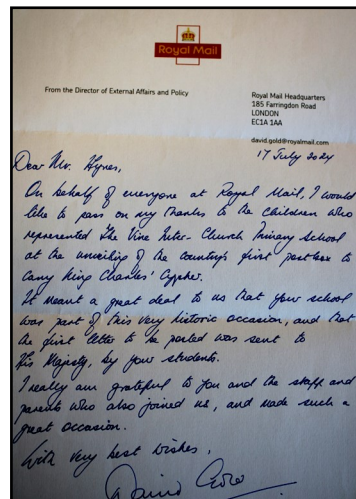 Royal Mail
From the Director of External Affairs and Policy
Royal Mail Headquarters
185 Farringdon Road
LONDON
EC1A 1AA
david.gold@royalmail.com
17 July 2024
Dear Mr. Hynes,
On behalf of everyone at Royal Mail, I would
like to pass on my thanks to the children who
represented The Vine Inter-Church Primary School
at the unveiling of the country's first postbox to
carry King Charles' Cypher.
It meant a great deal to us that your school
was part of this very historic occasion, and that
the first letter to be posted was sent to
His Majesty, by your students.
I really am grateful to you and the staff and
parents who also joined us, and made such a
great occasion.
With very best wishes,
David Gold